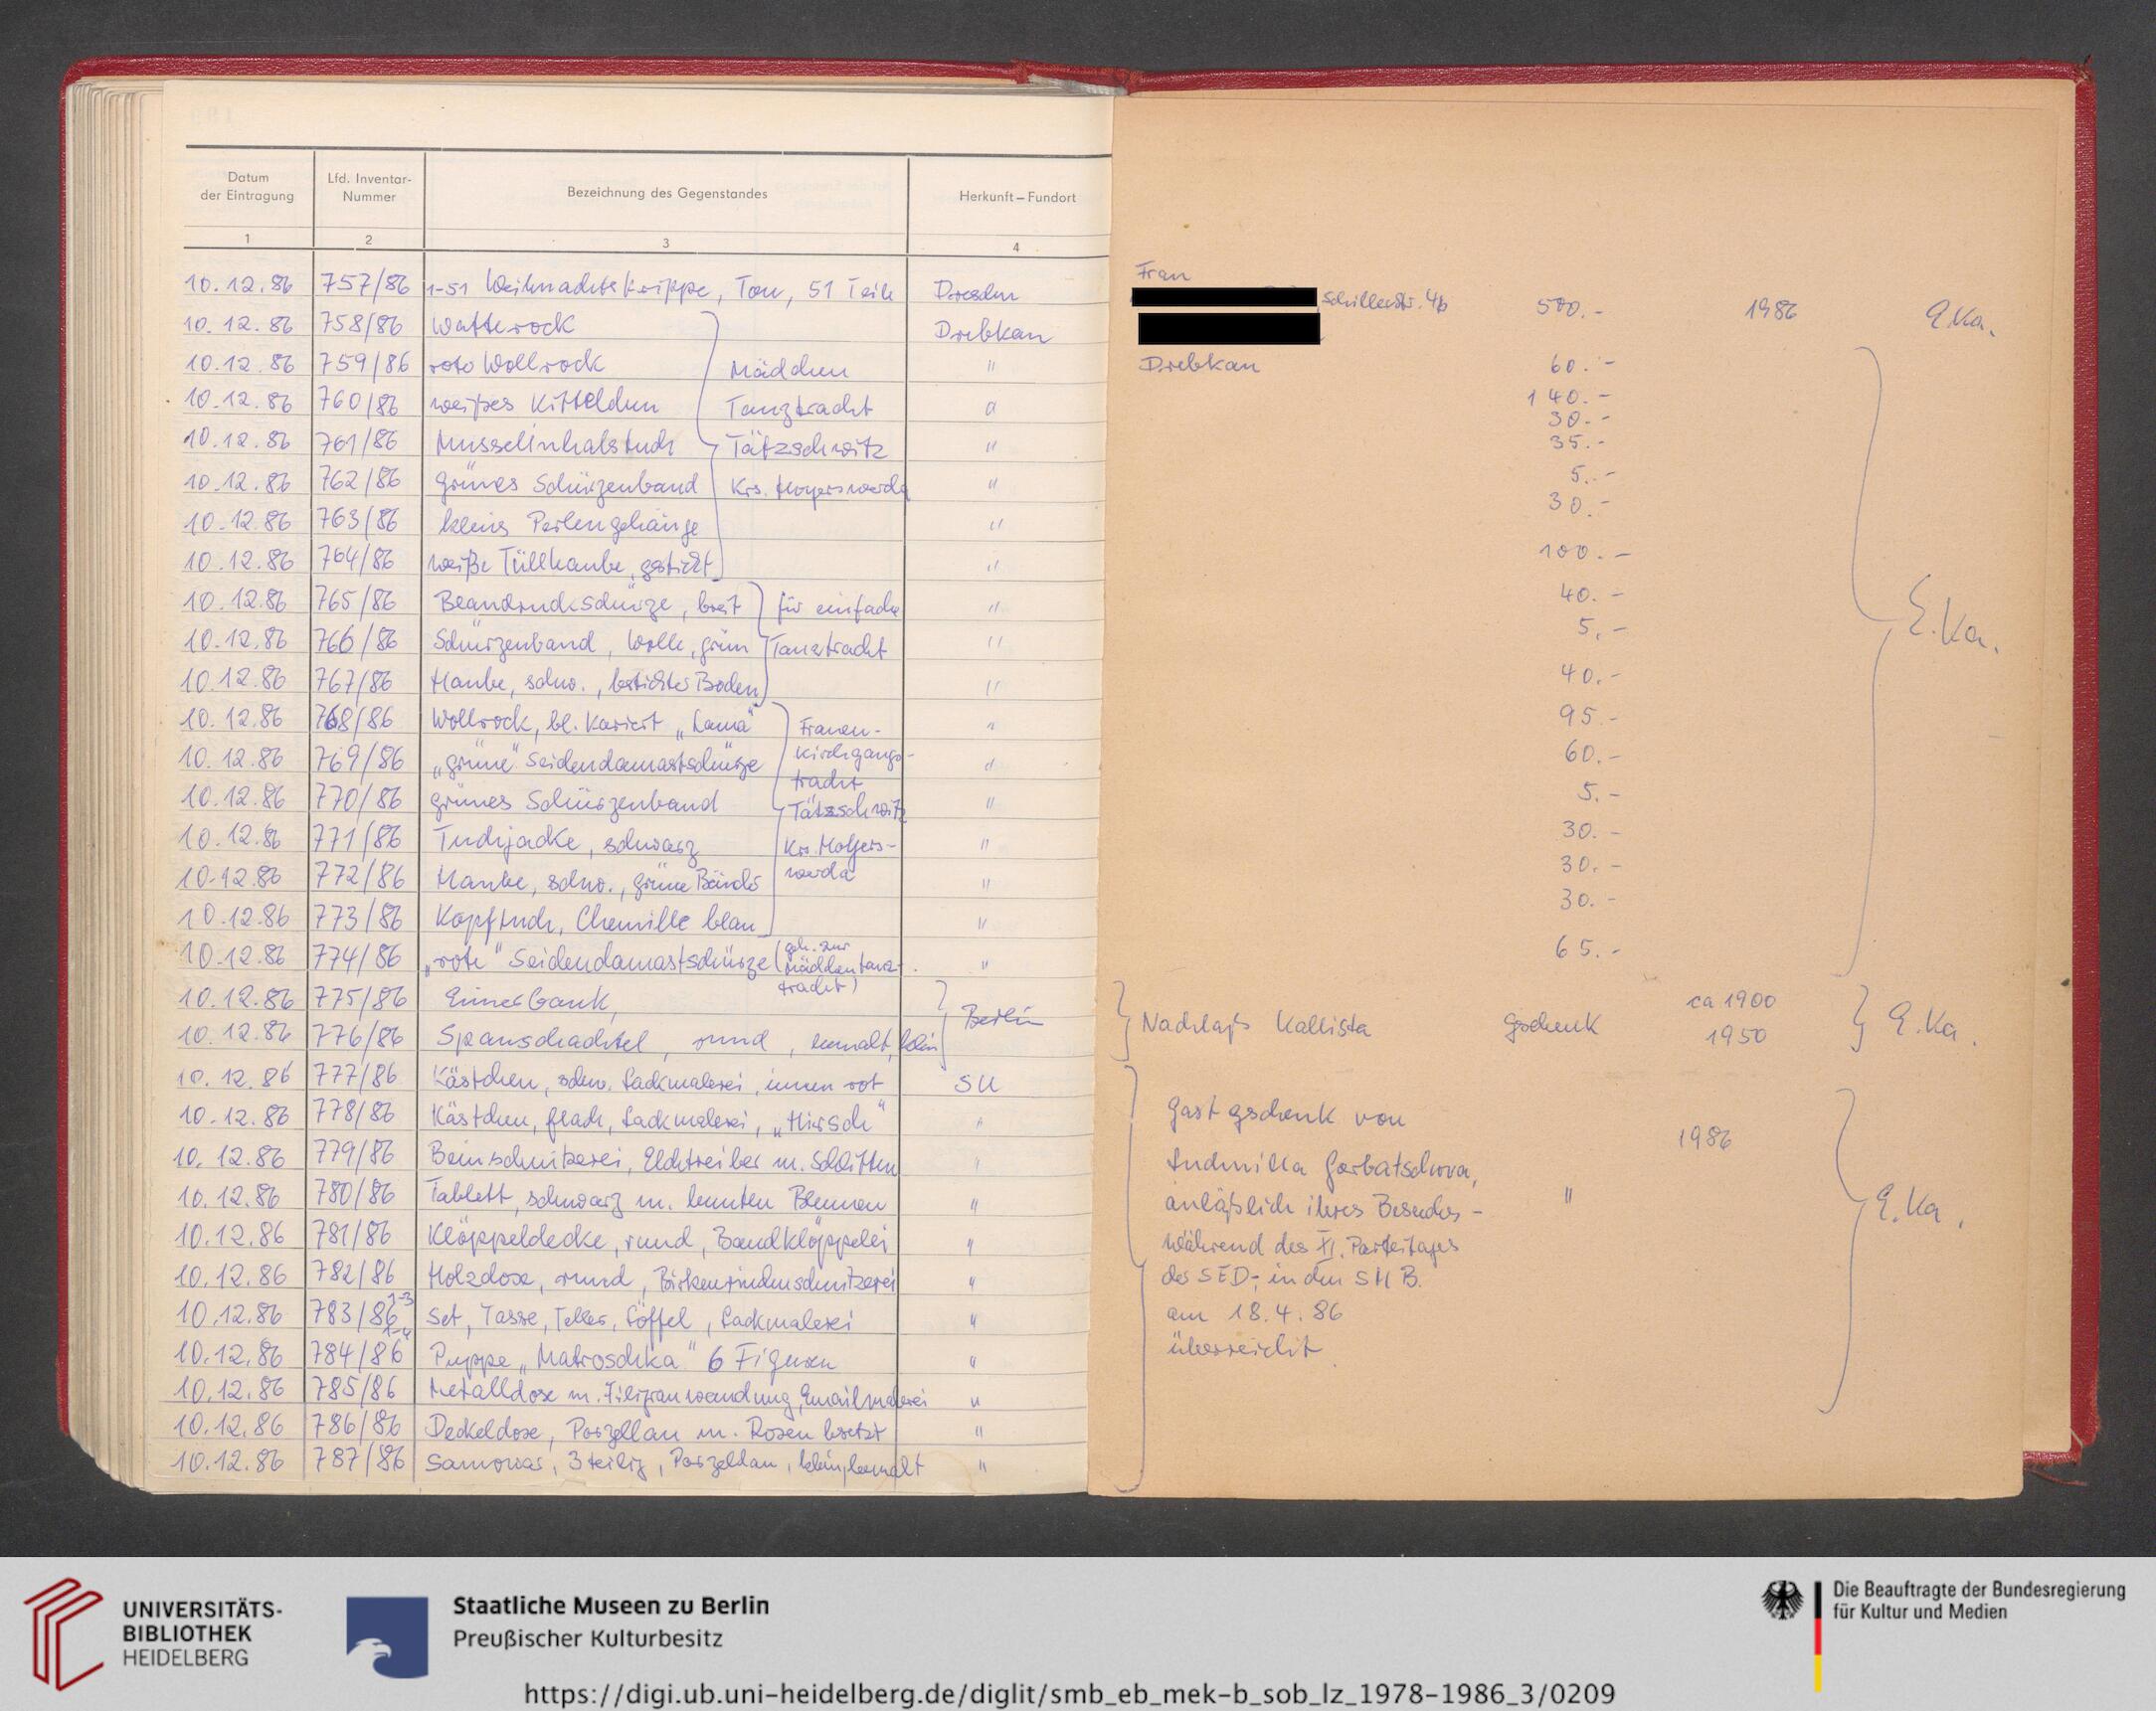 Datum der Eintragung | Lfd. Inventar-Nummer | Bezeichnung des Gegenstandes | Herkunft – Fundort
1 | 2 | 3 | 4
10.12.86 | 757/86 | 1-51 Weihnachtskrippe, Ton, 51 Teile | Dresden
10.12.86 | 758/86 | Watterock | Drebkau
10.12.86 | 759/86 | rote Wollrock | Mädchen | "
10.12.86 | 760/86 | weißes Kittelchen | Tanztracht | "
10.12.86 | 761/86 | Musselinhalstuch | Tätzschwitz | "
10.12.86 | 762/86 | grünes Schürzenband | Krs. Hoyerswerda | "
10.12.86 | 763/86 | kleines Perlengehänge | "
10.12.86 | 764/86 | weiße Tüllhaube, gestickt | "
10.12.86 | 765/86 | Blaudruckschürze, breit | für einfache | "
10.12.86 | 766/86 | Schürzenband, Wolle, grün | Tanztracht | "
10.12.86 | 767/86 | Haube, schw., bestickter Boden | "
10.12.86 | 768/86 | Wollrock, bl. kariert „Lama" | Frauen- | "
10.12.86 | 769/86 | „grüne" Seidendamastschürze | kirchgangs- | "
tracht
10.12.86 | 770/86 | grünes Schürzenband | Tätzschwitz | "
10.12.86 | 771/86 | Tuchjacke, schwarz | Krs. Hoyers- | "
10.12.86 | 772/86 | Haube, schw., grüne Bänder | werda | "
10.12.86 | 773/86 | Kopftuch, Chenille blau | "
10.12.86 | 774/86 | „rote" Seidendamastschürze (geh. zur Mädchentanz- tracht) | "
10.12.86 | 775/86 | Eimerbank, | Berlin
10.12.86 | 776/86 | Spanschachtel, rund, bemalt, klein
10.12.86 | 777/86 | Kästchen, schw. Lackmalerei, innen rot | SU
10.12.86 | 778/86 | Kästchen, flach, Lackmalerei, „Hirsch" | "
10.12.86 | 779/86 | Beinschnitzerei, Elchtreiber m. Schlitten | "
10.12.86 | 780/86 | Tablett, schwarz m. bunten Blumen | "
10.12.86 | 781/86 | Klöppeldecke, rund, Bandklöppelei | "
10.12.86 | 782/86 | Holzdose, rund, Birkenrindenschnitzerei | "
10.12.86 | 783/86 1-3 | Set, Tasse, Teller, Löffel, Lackmalerei | "
10.12.86 | 784/86 | Puppe „Matroschka" 6 Figuren | "
10.12.86 | 785/86 | Metalldose m. Filigranwandung, Emailmalerei | "
10.12.86 | 786/86 | Deckeldose, Porzellan m. Rosen besetzt | "
10.12.86 | 787/86 | Samowar, 3teilig, Porzellan, bemalt | "
Frau
, Schillerstr. 4b | 500.- | 1986 | E.Ka.
Drebkau | 60.-
140.-
30.-
35.-
5.-
30.-
100.-
40.-
5.-
E.Ka.
40.-
95.-
60.-
5.-
30.-
30.-
30.-
65.-
Nachlaß Kallista | Geschenk | ca 1900 | E.Ka.
1950
Gastgeschenk von
1986
Ludmilla Gorbatschowa,
anläßlich ihres Besuches - | " | E.Ka.
während des XI. Parteitages
der SED-, in den SMB.
am 18.4.86
überreicht.
UNIVERSITÄTS-
BIBLIOTHEK
HEIDELBERG
Staatliche Museen zu Berlin
Preußischer Kulturbesitz
Die Beauftragte der Bundesregierung
für Kultur und Medien
https://digi.ub.uni-heidelberg.de/diglit/smb_eb_mek-b_sob_lz_1978-1986_3/0209